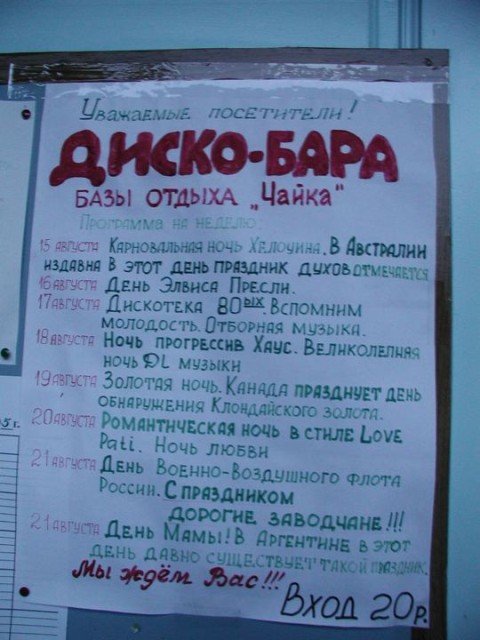 Уважаемые посетители!
Диско-бара
базы отдыха „Чайка"
Программа на неделю:
15 августа Карновальная ночь Хелоуина. В Австралии
издавна в этот день праздник духов отмечается
16 августа День Элвиса Пресли.
17 августа Дискотека 80ых. Вспомним
молодость. Отборная музыка.
18 августа Ночь прогрессив Хаус. Великолепная
ночь DL музыки
19 августа Золотая ночь. Канада празднует день
обнаружения Клондайского золота.
20 августа Романтическая ночь в стиле Love
Pati. Ночь любви
21 августа День Военно-Воздушного флота
России. С праздником
дорогие заводчане!!!
21 августа День Мамы! В Аргентине в этот
день давно существует такой праздник.
Мы ждём Вас!!!
Вход 20р.
5 г.